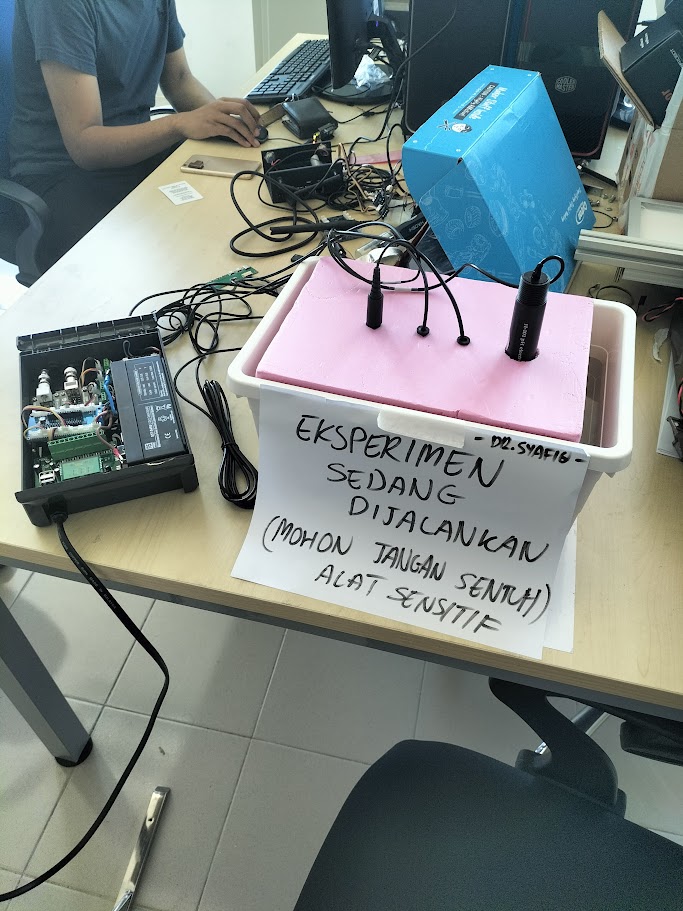 COOLER
MASTER
- DR. SYAFIQ -
EKSPERIMEN
SEDANG
DIJALANKAN
(MOHON JANGAN SENTUH)
ALAT SENSITIF